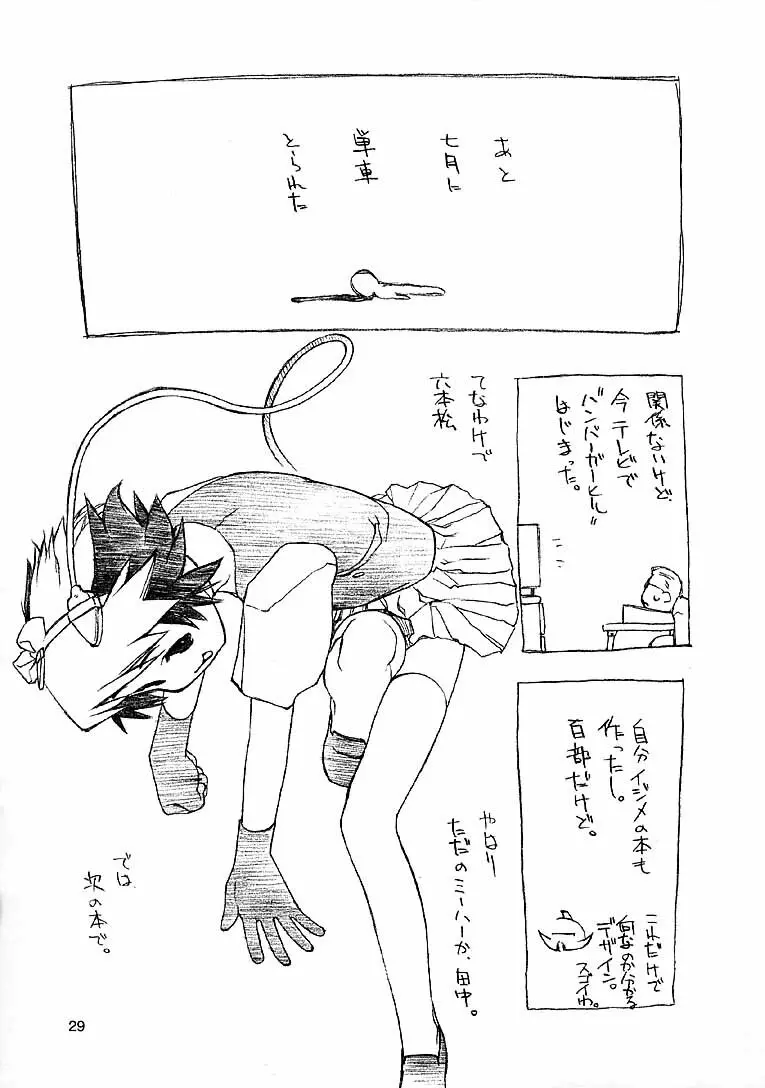 あと
七月に
単車
とられた
てなわけで
六本松
関係ないけど、
今テレビで
"バンバーガーヒル"
はじまった。
自分イジメの本も
作ったし。
百部だけど。
これだけで
何なのか分かる
デザイン。
スゴイわ。
やはり
ただのミーハーか、田中。
では
次の本で。
29